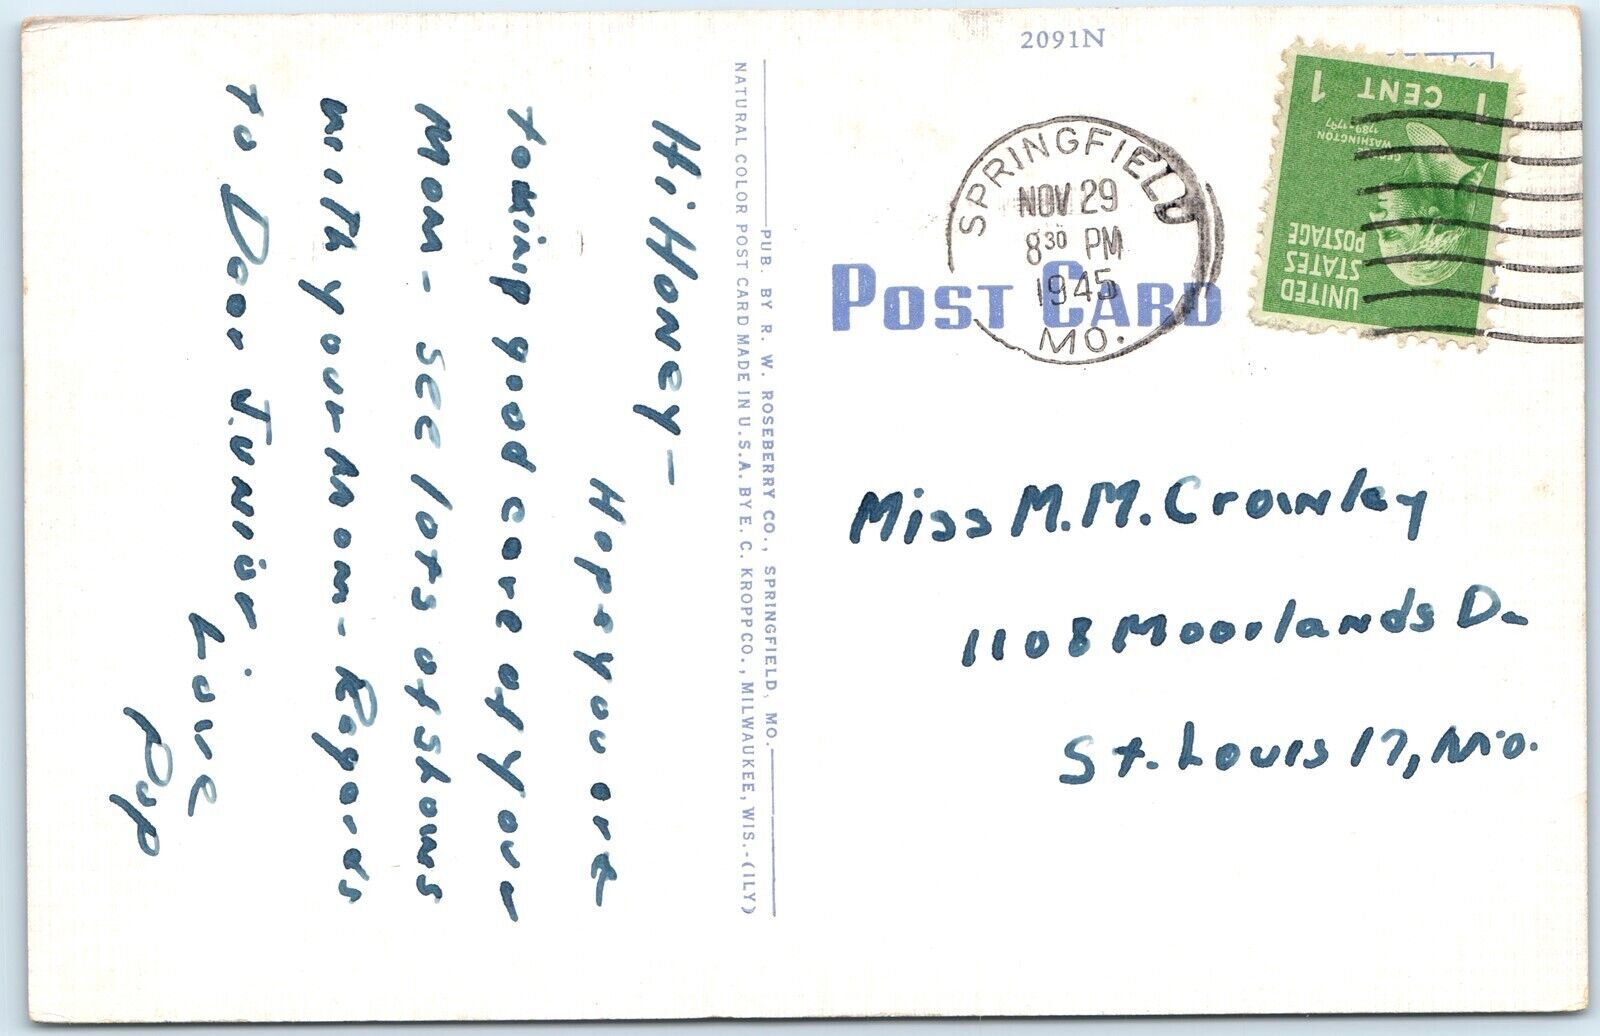 2091N
POST CARD
SPRINGFIELD
NOV 29
8 30 PM
1945
MO.
1 CENT 1
GEORGE
WASHINGTON
1789-1797
UNITED
STATES
POSTAGE
Miss M.M. Crowley
1108 Moorlands Dr
St. Louis 17, Mo.
PUB. BY R. W. ROSEBERRY CO., SPRINGFIELD, MO.
NATURAL COLOR POST CARD MADE IN U.S.A. BY E. C. KROPP CO., MILWAUKEE, WIS.-(ILY)
Hi Honey-
Hope you are
taking good care of your
Mom - see lots of shows
with your Mom - Regards
to Dear Junior
Love
Pop